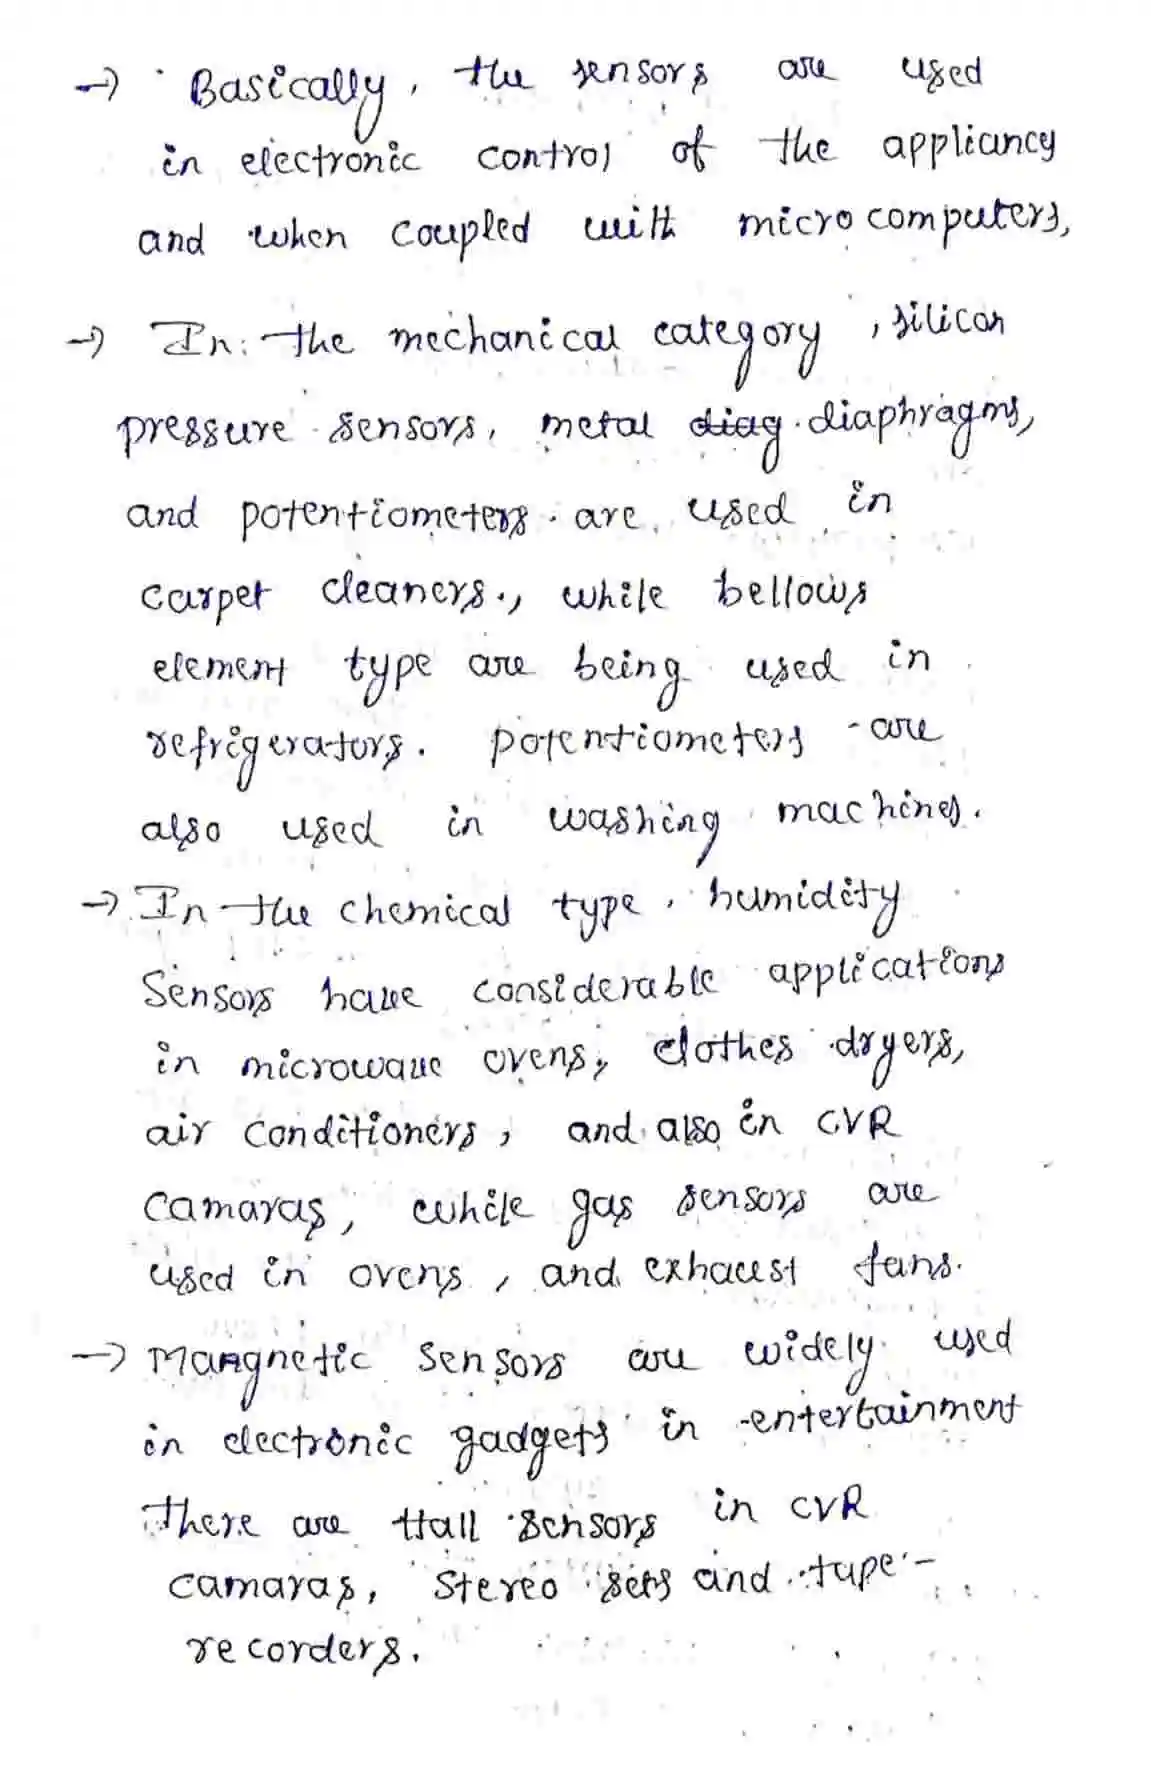 → Basically, the sensors are used
in electronic control of the appliancy
and when coupled with micro computers,
→ In the mechanical category, silicon
pressure sensors, metal diag diaphragms,
and potentiometers are used in
carpet cleaners., while bellows
element type are being used in
refrigerators. potentiometers are
also used in washing machines.
→ In the chemical type, humidity
Sensors have considerable applications
in microwave ovens, clothes dryers,
air conditioners, and also in CVR
Camaras, while gas sensors are
used in ovens, and exhaust fans.
→ Mangnetic Sensors are widely used
in electronic gadgets in entertainment
There are Hall sensors in CVR
camaras, Stereo sets and tape-
recorders.